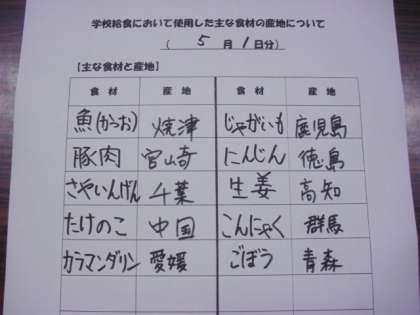 学校給食において使用した主な食材の産地について
( 5 月 1 日分)
【主な食材と産地】
食 材 産 地 食 材 産 地
魚(かつお) 焼津 じゃがいも 鹿児島
豚肉 宮崎 にんじん 徳島
さやいんげん 千葉 生姜 高知
たけのこ 中国 こんにゃく 群馬
カラマンダリン 愛媛 ごぼう 青森